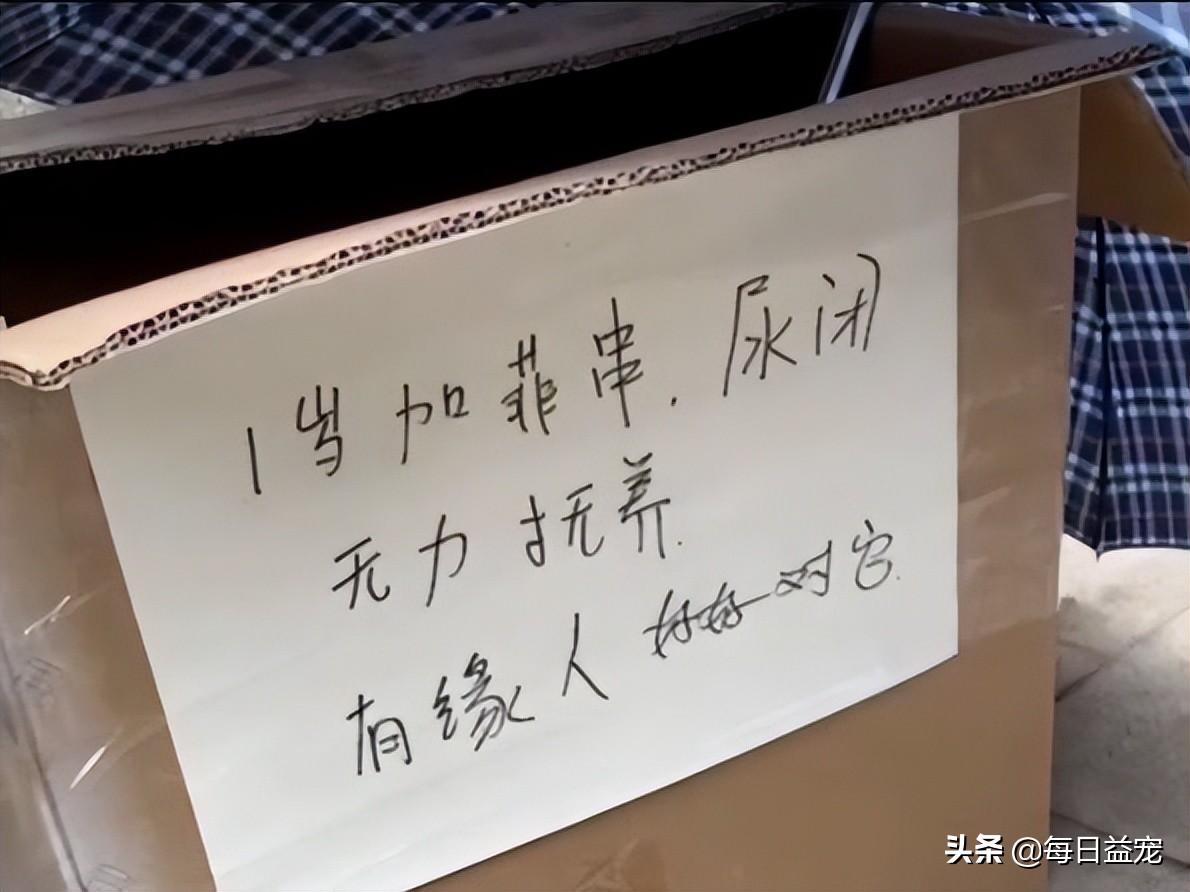 1岁加菲串.尿闭
无力抚养.
有缘人好好对它.
头条 @每日益宠